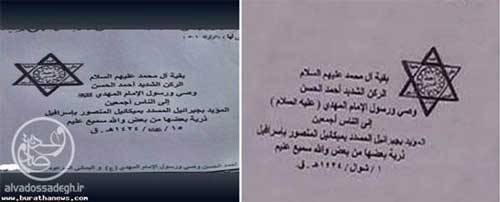 بقية آل محمد عليهم السلام
الركن الشديد أحمد الحسن
وصي ورسول الإمام المهدي
إلى الناس أجمعين
المؤيد بجبرائيل المسدد بميكائيل المنصور بإسرافيل
ذرية بعضها من بعض والله سميع عليم
١٤٢٤هـ . ق
احمد الحسن وصي ورسول الإمام المهدي (ع) و اليماني
alvadossadegh.ir
www.burathanews.com
بقية آل محمد عليهم السلام
الركن الشديد أحمد الحسن
وصي ورسول الإمام المهدي ( عليه السلام )
إلى الناس أجمعين
المؤيد بجبرائيل المسدد بميكائيل المنصور بإسرافيل
ذرية بعضها من بعض والله سميع عليم
١ / شوال / ١٤٢٤هـ . ق